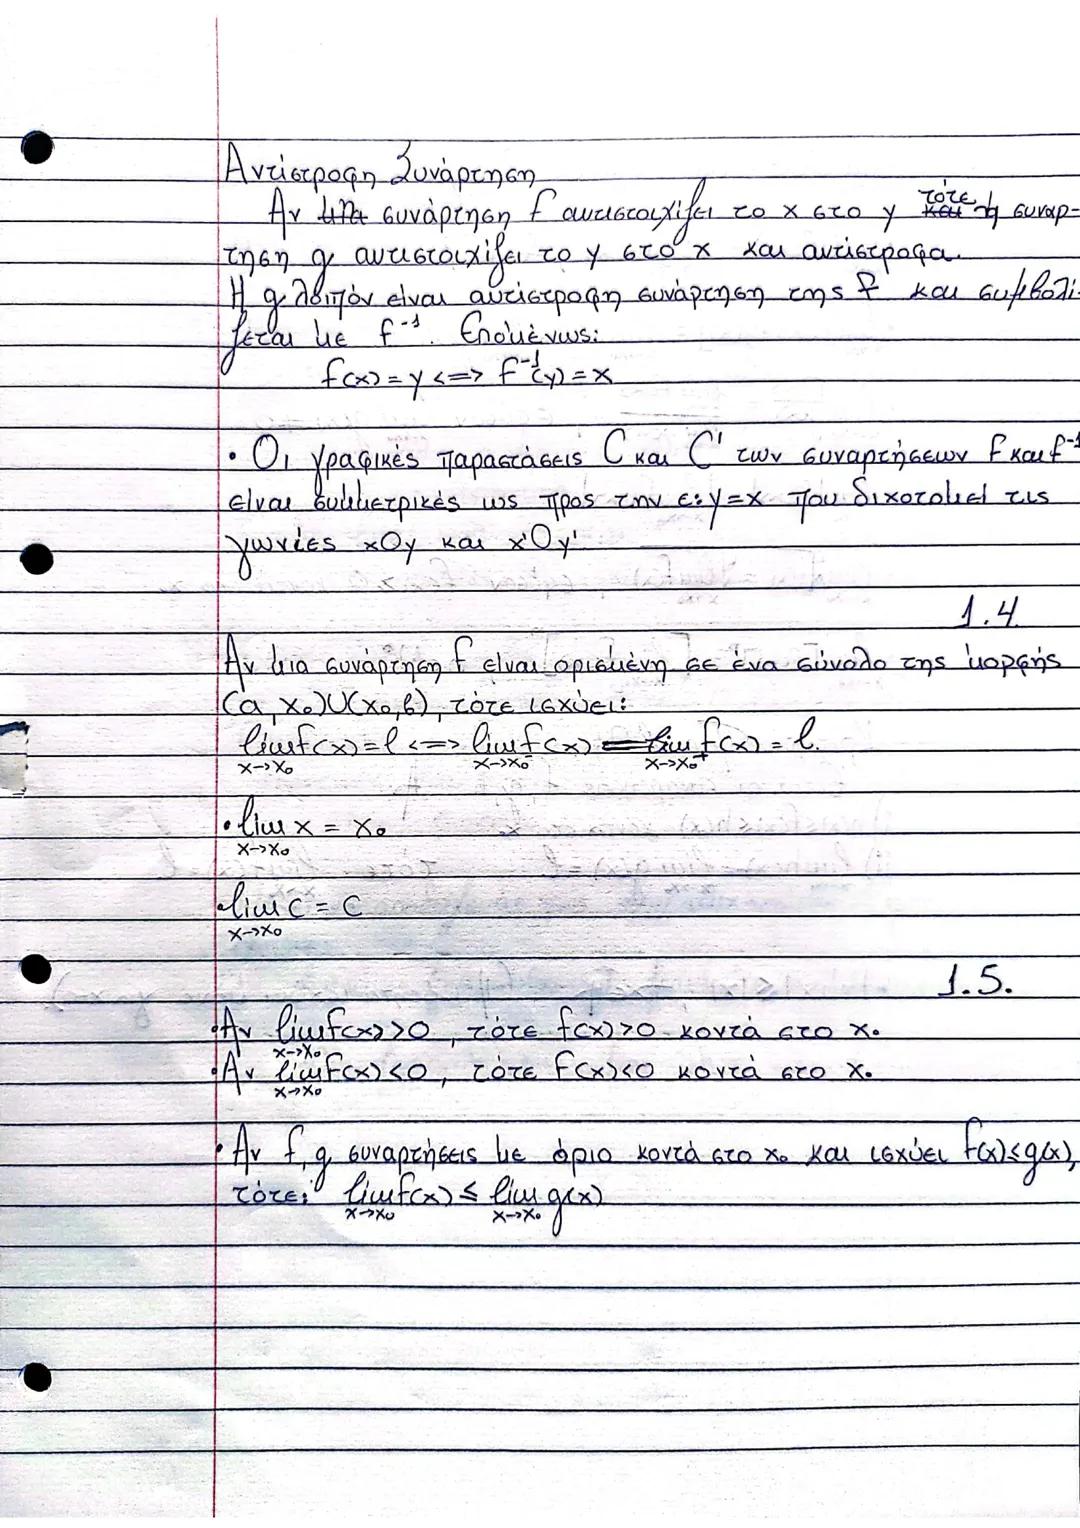 Αντίστροφη Συνάρτηση
Αν συνάρτηση f αντιστοιχίζει το x στο y τότε η συναρ-
τηση g αντιστοιχίζει το y στο x και αντίστροφα.
Η g λοιπόν είναι αντίστροφη συνάρτηση της f και συμβολί-
ζεται με f⁻¹. Επομένως:
f(x)=y <=> f⁻¹(y)=x
• Οι γραφικές παραστάσεις C και C' των συναρτήσεων f και f⁻¹
είναι συμμετρικές ως προς την ε: y=x που διχοτομεί τις
γωνίες xOy και x'Oy'.
1.4.
Αν μια συνάρτηση f είναι ορισμένη σε ένα σύνολο της μορφής
(α, x₀)U(x₀,β), τότε ισχύει:
lim f(x)=l <=> lim f(x) = lim f(x) = l.
x->x₀ x->x₀⁻ x->x₀⁺
• lim x = x₀
x->x₀
• lim c = c
x->x₀
1.5.
• Αν lim f(x)>0, τότε f(x)>0 κοντά στο x₀
x->x₀
• Αν lim f(x)<0, τότε f(x)<0 κοντά στο x₀
x->x₀
• Αν f, g συναρτήσεις με όριο κοντά στο x₀ και ισχύει f(x)≤g(x),
τότε: lim f(x) ≤ lim g(x)
x->x₀ x->x₀